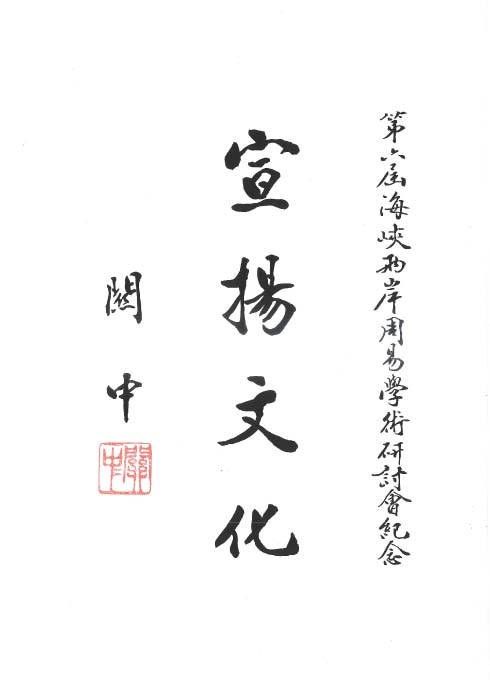 第六屆海峽兩岸周易學術研討會紀念
宣揚文化
關中
關中